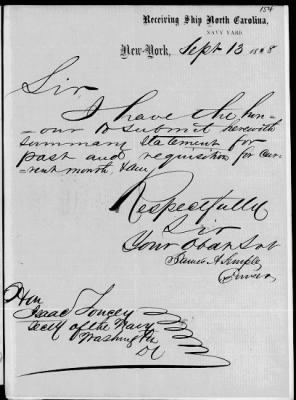 154
Receiving Ship North Carolina,
NAVY YARD
New-York, Sept 13 1858
Sir
I have the hon-
-our to submit herewith
summary statement for
past and requisition for cur-
rent month, I am
Respectfully
Sir
Your Obdt Svt
Purser
Hon
Isaac Toucey
Secty of the Navy
Washington
DC